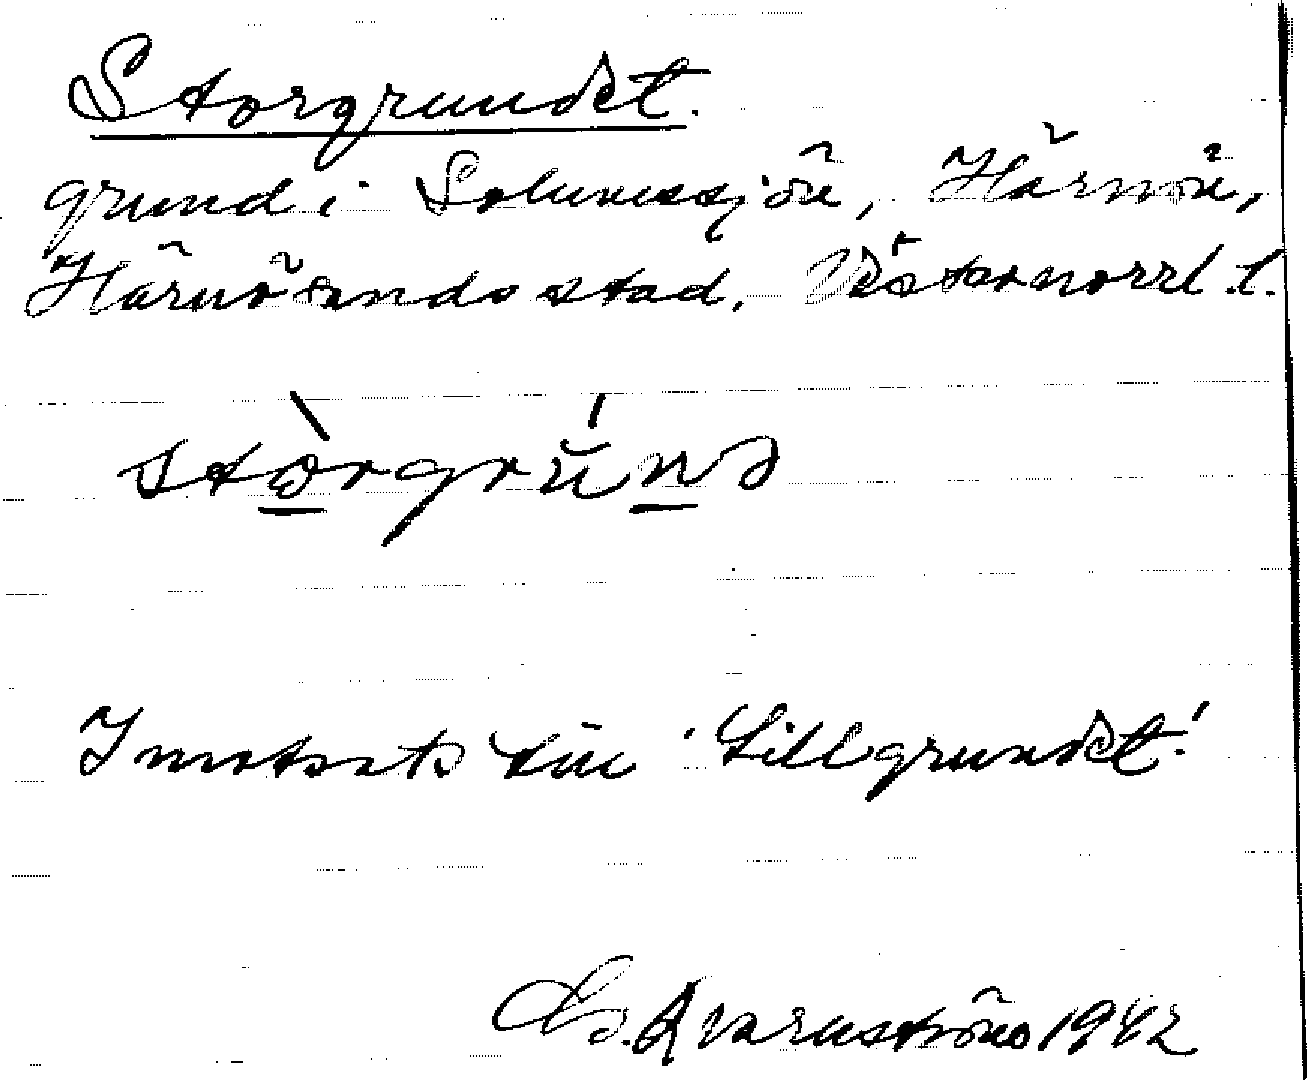 Storgrundet.
grund i Solumssjön, Härnön,
Härnösands stad. Västernorrl. l.
stòrgrúnd
I motsats till 'Lillgrundet!
Kvarnström 1942